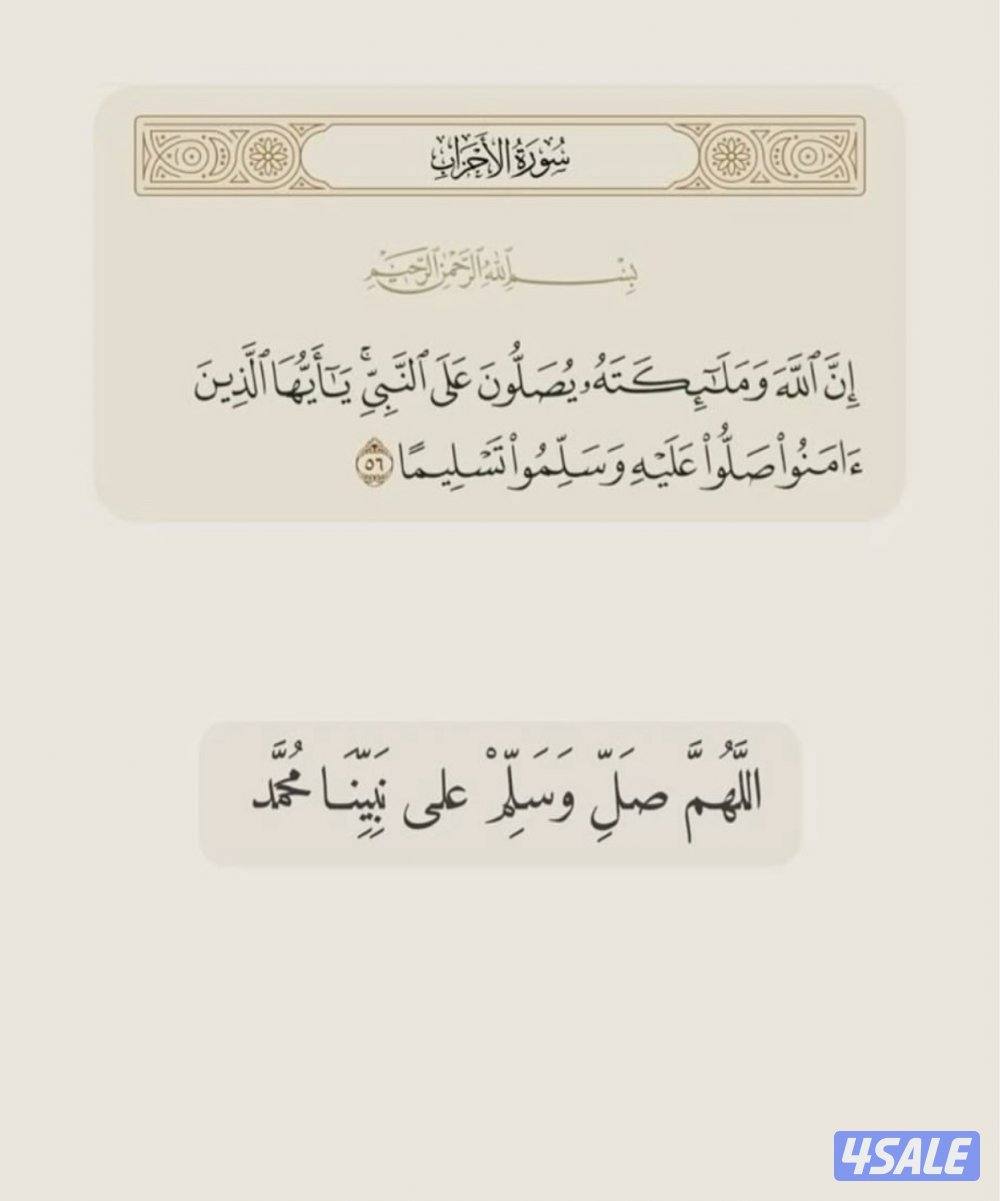 سُورَةُ الأَحْزَابِ
بِسْمِ ٱللَّهِ ٱلرَّحْمَٰنِ ٱلرَّحِيمِ
إِنَّ ٱللَّهَ وَمَلَٰٓئِكَتَهُۥ يُصَلُّونَ عَلَى ٱلنَّبِيِّۚ يَٰٓأَيُّهَا ٱلَّذِينَ
ءَامَنُوا۟ صَلُّوا۟ عَلَيْهِ وَسَلِّمُوا۟ تَسْلِيمًا ٥٦
اللَّهُمَّ صَلِّ وَسَلِّمْ على نَبِيِّنَا مُحَمَّد
4SALE